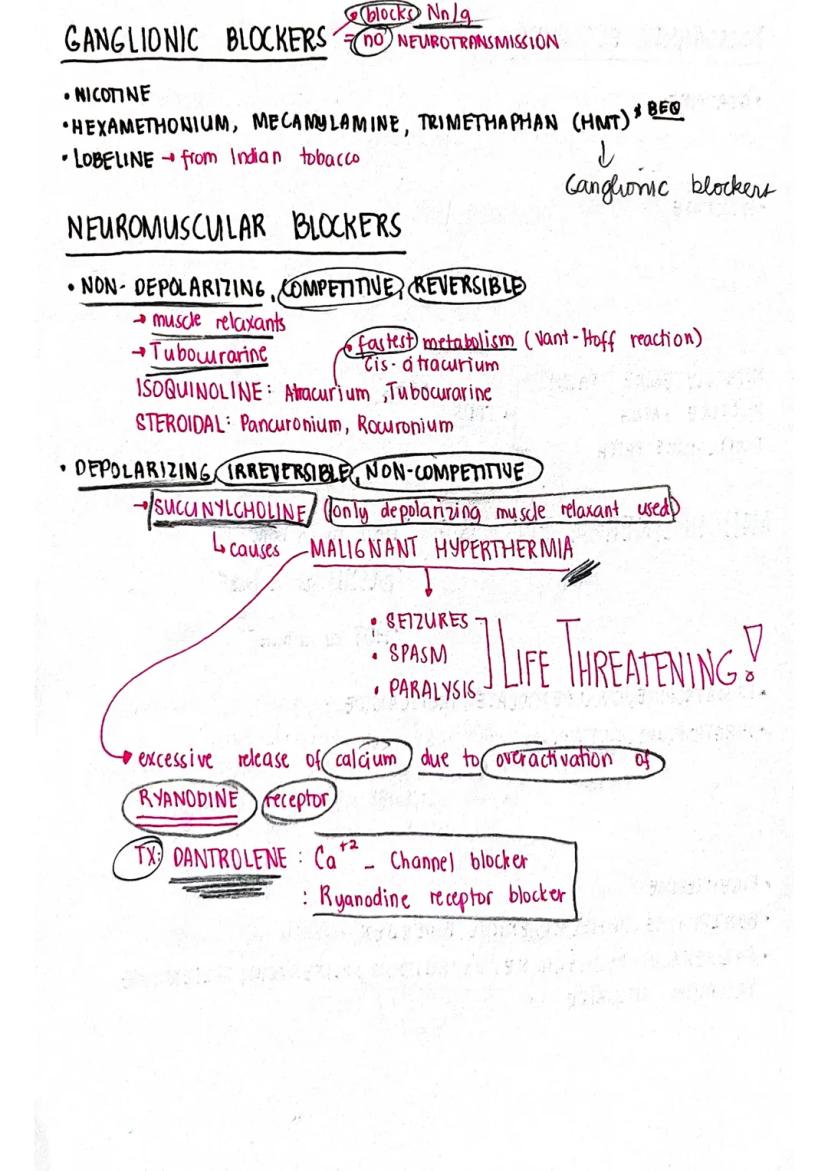 blocks Nn/g
GANGLIONIC BLOCKERS = no NEUROTRANSMISSION
• NICOTINE
• HEXAMETHONIUM, MECAMYLAMINE, TRIMETHAPHAN (HMT) * BEQ
↓
• LOBELINE → from Indian tobacco
Ganglionic blockers
NEUROMUSCULAR BLOCKERS
• NON-DEPOLARIZING, COMPETITIVE, REVERSIBLE
→ muscle relaxants
→ Tubocurarine
fastest metabolism (Vant-Hoff reaction)
Cis-atracurium
ISOQUINOLINE: Atracurium, Tubocurarine
STEROIDAL: Pancuronium, Rocuronium
• DEPOLARIZING, IRREVERSIBLE, NON-COMPETITIVE
→ SUCCINYLCHOLINE (only depolarizing muscle relaxant used)
↳ causes MALIGNANT HYPERTHERMIA
↓
• SEIZURES
• SPASM
• PARALYSIS
LIFE THREATENING!
excessive release of calcium due to overactivation of
RYANODINE receptor
TX: DANTROLENE : Ca+2 - Channel blocker
: Ryanodine receptor blocker